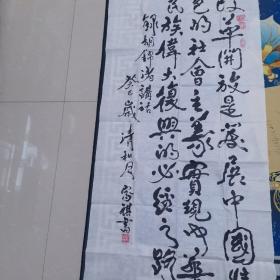 改革開放是發展中國特
色的社會主義實現中華
民族偉大復興的必經之路
錄胡錦濤講話
癸巳歲清和月家祺書